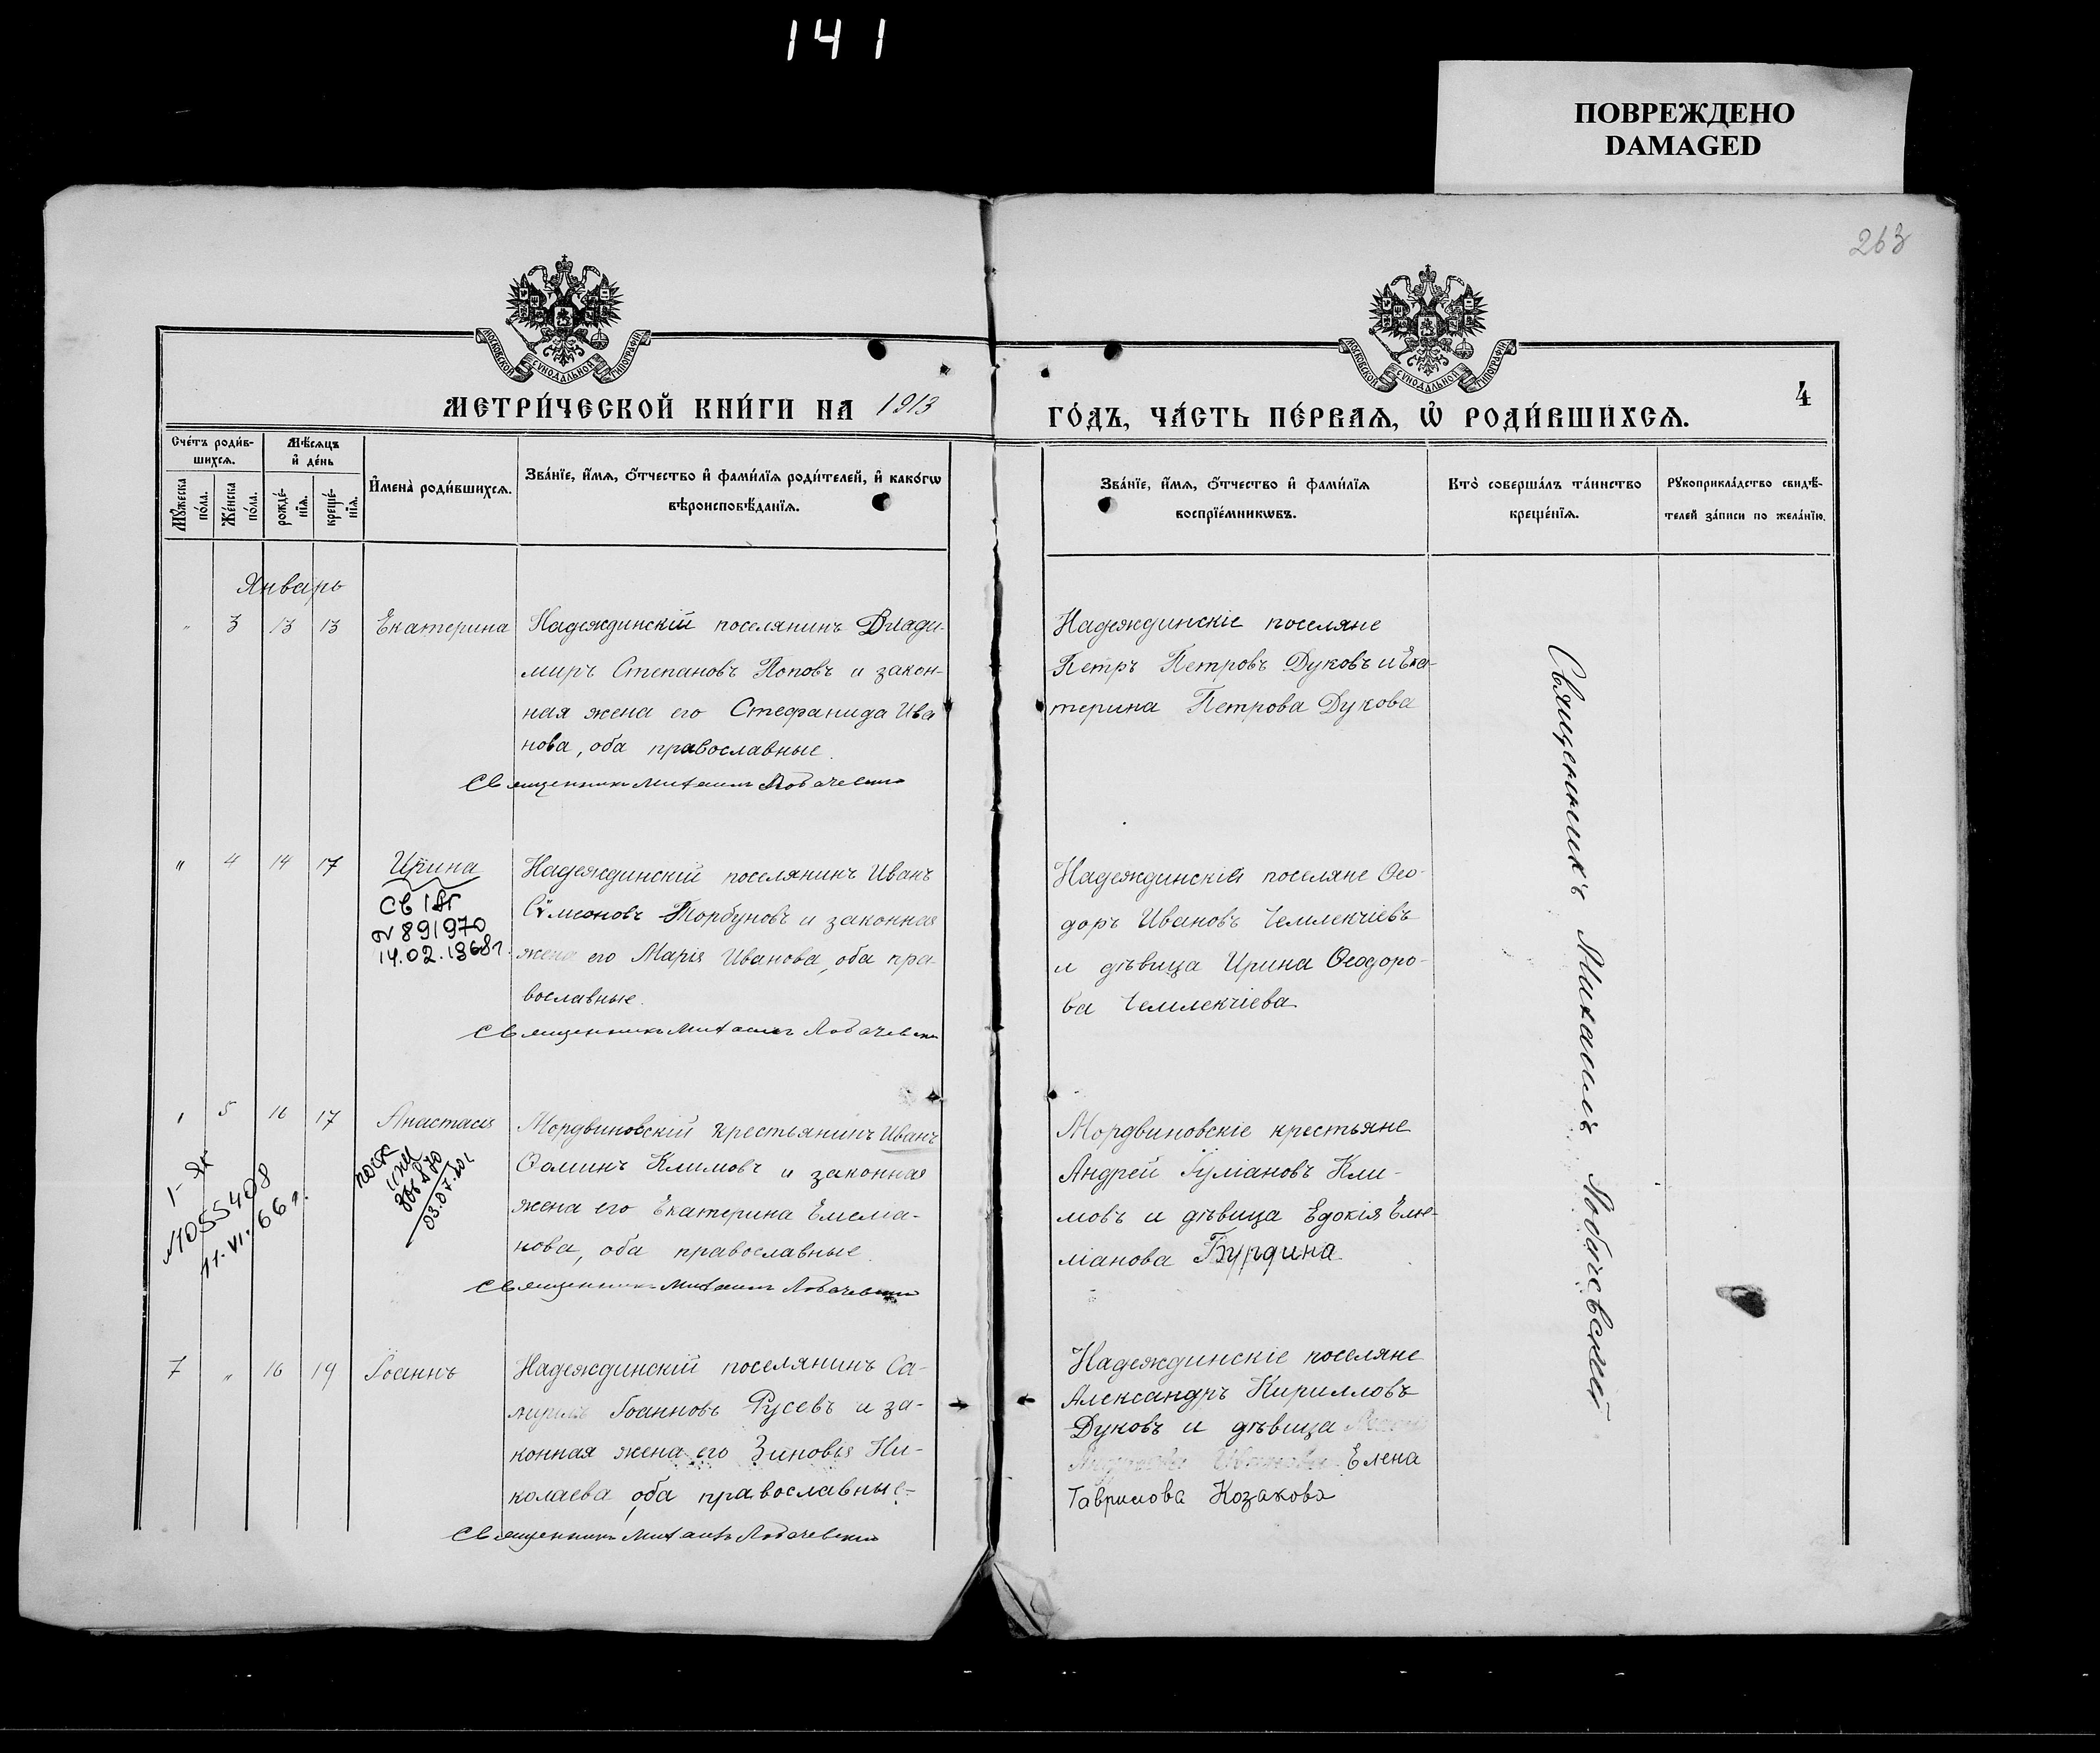 141
ПОВРЕЖДЕНО
DAMAGED
263
МОСКОВСКОЙ СѴНОДАЛЬНОЙ ТИПОГРАФІИ
МОСКОВСКОЙ СѴНОДАЛЬНОЙ ТИПОГРАФІИ
4
МЕТРИ́ЧЕСКОЙ КНИ́ГИ НА 1913
ГО́ДЪ, ЧА́СТЬ ПЕ́РВАЯ, Ѽ РОДИ́ВШИХСЯ.
Сче́тъ роди́в-
шихся.
Мѣ́сяцъ
и҆ де́нь
Мꙋ́жеска
по́ла.
Же́нска
по́ла.
рожде́-
нїя.
креще́-
нїя.
И҆мена̀ роди́вшихся.
Зва́нїе, и҆́мя, ѻ҆́тчество и҆ фами́лїя роди́телей, и҆ како́гѡ
вѣроисповѣ́данїя.
Зва́нїе, и҆́мя, ѻ҆́тчество и҆ фами́лїя
воспрїе́мникѡвъ.
Кто̀ соверша́лъ та́инство
креще́нїя.
Рꙋкоприкла́дство свидѣ́-
телей за́писи по жела́нїю.
Январь
" 3 13 13 Екатерина
Надеждинскій поселянинъ Влади-
миръ Степановъ Поповъ и закон-
ная жена его Стефанида Ива
нова, оба православные.
Священникъ Михаилъ Лобачевскій
Надеждинскіе поселяне
Петръ Петровъ Дуковъ и Ека-
терина Петрова Дукова
" 4 14 17 Ирина
Св
№ 891970
14.02.1968г.
Надеждинскій поселянинъ Иванъ
Сѵмеоновъ Торбуновъ и законная
жена его Марія Иванова, оба пра-
вославные.
Священникъ Михаилъ Лобачевскій
Надеждинскіе поселяне Ѳео-
доръ Ивановъ Чемлекчіевъ
и дѣвица Ирина Ѳеодоро-
ва Чемлекчіева
" 5 16 17 Анастасія
1-ЯК
№055408
11.VI.66г.
Мордвиновскій крестьянинъ Иванъ
Ѳоминъ Климовъ и законная
жена его Екатерина Емелья-
нова, оба православные.
Священникъ Михаилъ Лобачевскій
Мордвиновскіе крестьяне
Андрей Іуліановъ Кли-
мовъ и дѣвица Евдокія Еме-
ліанова Бурдина
7 " 16 19 Іоаннъ
Надеждинскій поселянинъ Са-
муилъ Іоанновъ Русевъ и за-
конная жена его Зиновія Ни-
колаева, оба православные
Священникъ Михаилъ Лобачевскій
Надеждинскіе поселяне
Александръ Кирилловъ
Дуковъ и дѣвица
Елена
Гаврилова Козакова
Священникъ Михаилъ Лобачевскій